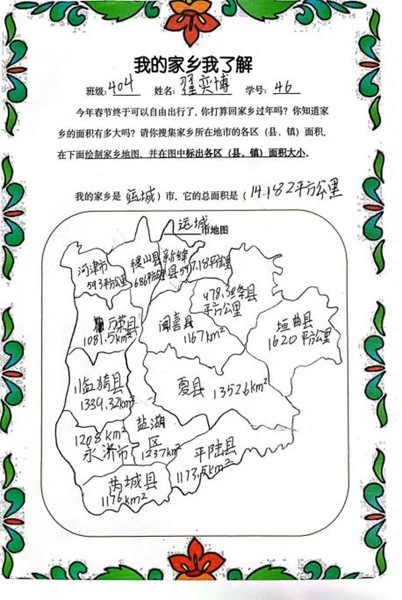 我的家乡我了解
班级:404 姓名:翟奕博 学号:46
今年春节终于可以自由出行了,你打算回家乡过年吗?你知道家
乡的面积有多大吗?请你搜集家乡所在地市的各区(县、镇)面积,
在下面绘制家乡地图,并在图中标出各区(县、镇)面积大小.
我的家乡是(运城)市,它的总面积是(14.182平方公里
运城市地图
河津市
593平方公里
稷山县
686平方公里
新绛
县597.18平方公里
478.3绛县
平方公里
万荣县
1081.5km²
闻喜县
1167km²
垣曲县
1620平方公里
临猗县
1339.32km²
夏县 1352.6km²
1208km²
永济市
盐湖
区
1237km²
平陆县
1173.5km²
芮城县
1176km²